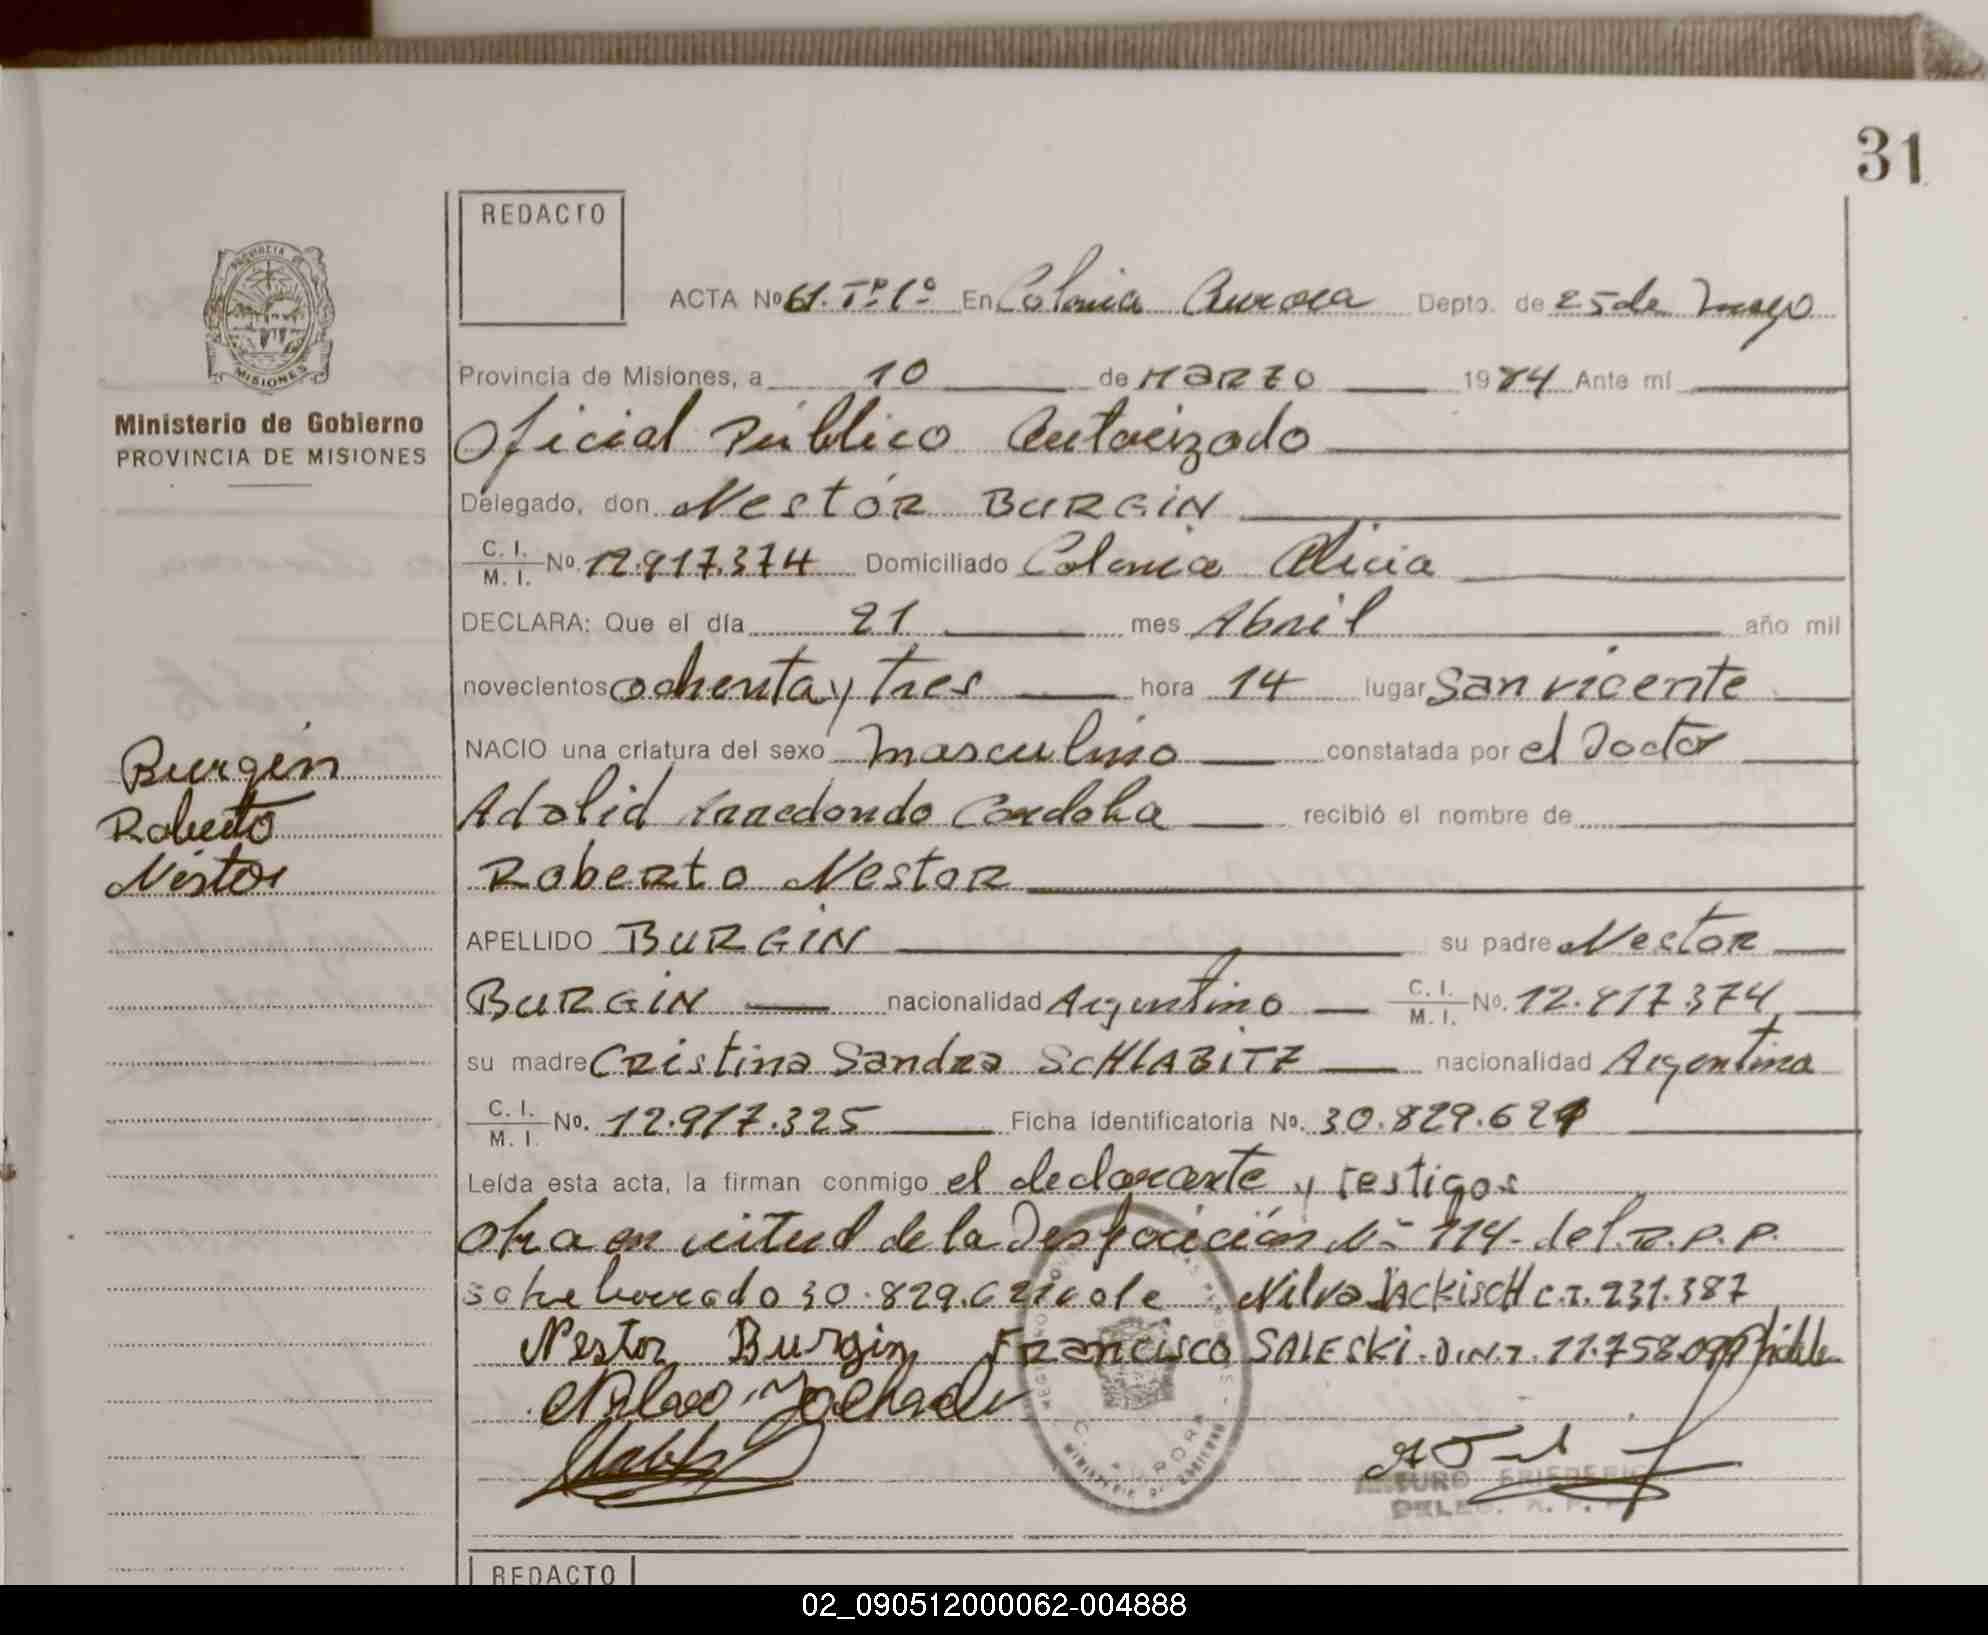 31
REDACTO
ACTA No 61. Tº 1º En Colonia Aurora Depto. de 25 de Mayo
PROVINCIA DE MISIONES
Ministerio de Gobierno
PROVINCIA DE MISIONES
Provincia de Misiones, a 10 de MARZO 1984 Ante mí
Oficial Público Autorizado
Delegado, don Nestór BURGIN
C. I. / M. I. No. 12.917.374 Domiciliado Colonia Alicia
DECLARA: Que el día 21 mes Abril año mil
novecientos ochenta y tres hora 14 lugar San vicente
NACIO una criatura del sexo masculino constatada por el Doctor
Adalid Arredondo Cordoba recibió el nombre de
Roberto Nestor
Burgin
Roberto
Néstor
APELLIDO BURGIN su padre Nestor
BURGIN nacionalidad Argentino C. I. / M. I. No. 12.917.374
su madre Cristina Sandra SCHLABITZ nacionalidad Argentina
C. I. / M. I. No. 12.917.325 Ficha identificatoria No. 30.829.621
Leída esta acta, la firman conmigo el declarante y testigos
Obra en vitud de la Desposición Nº 114- del. R. P. P.
sobre borrado 30.829.621 vale Nilvo JACKISCH C.I. 231.387
Nestor Burgin Francisco SALESKI. D.N.I. 11.758.099
MINISTERIO DE GOBIERNO
ARTURO FRIEDERICH
DELEG. R. P. P.
REDACTO
02_090512000062-004888